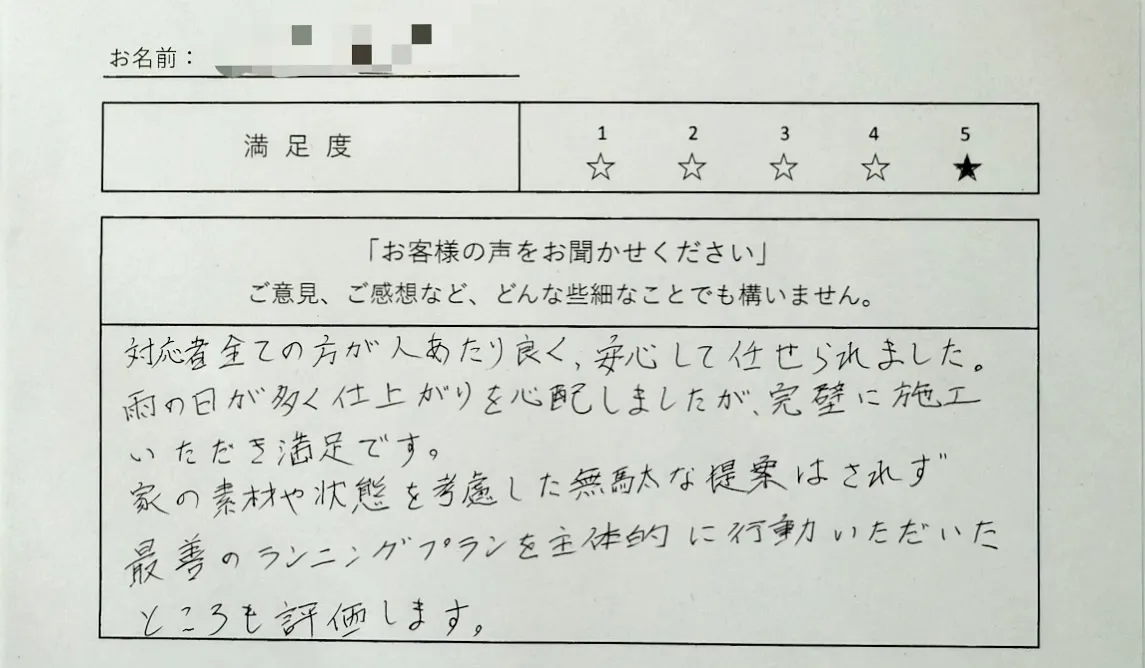 お名前：
満足度
1 2 3 4 5
☆ ☆ ☆ ☆ ★
「お客様の声をお聞かせください」
ご意見、ご感想など、どんな些細なことでも構いません。
対応者全ての方が人あたり良く、安心して任せられました。
雨の日が多く仕上がりを心配しましたが、完璧に施工
いただき満足です。
家の素材や状態を考慮した無駄な提案はされず
最善のランニングプランを主体的に行動いただいた
ところも評価します。